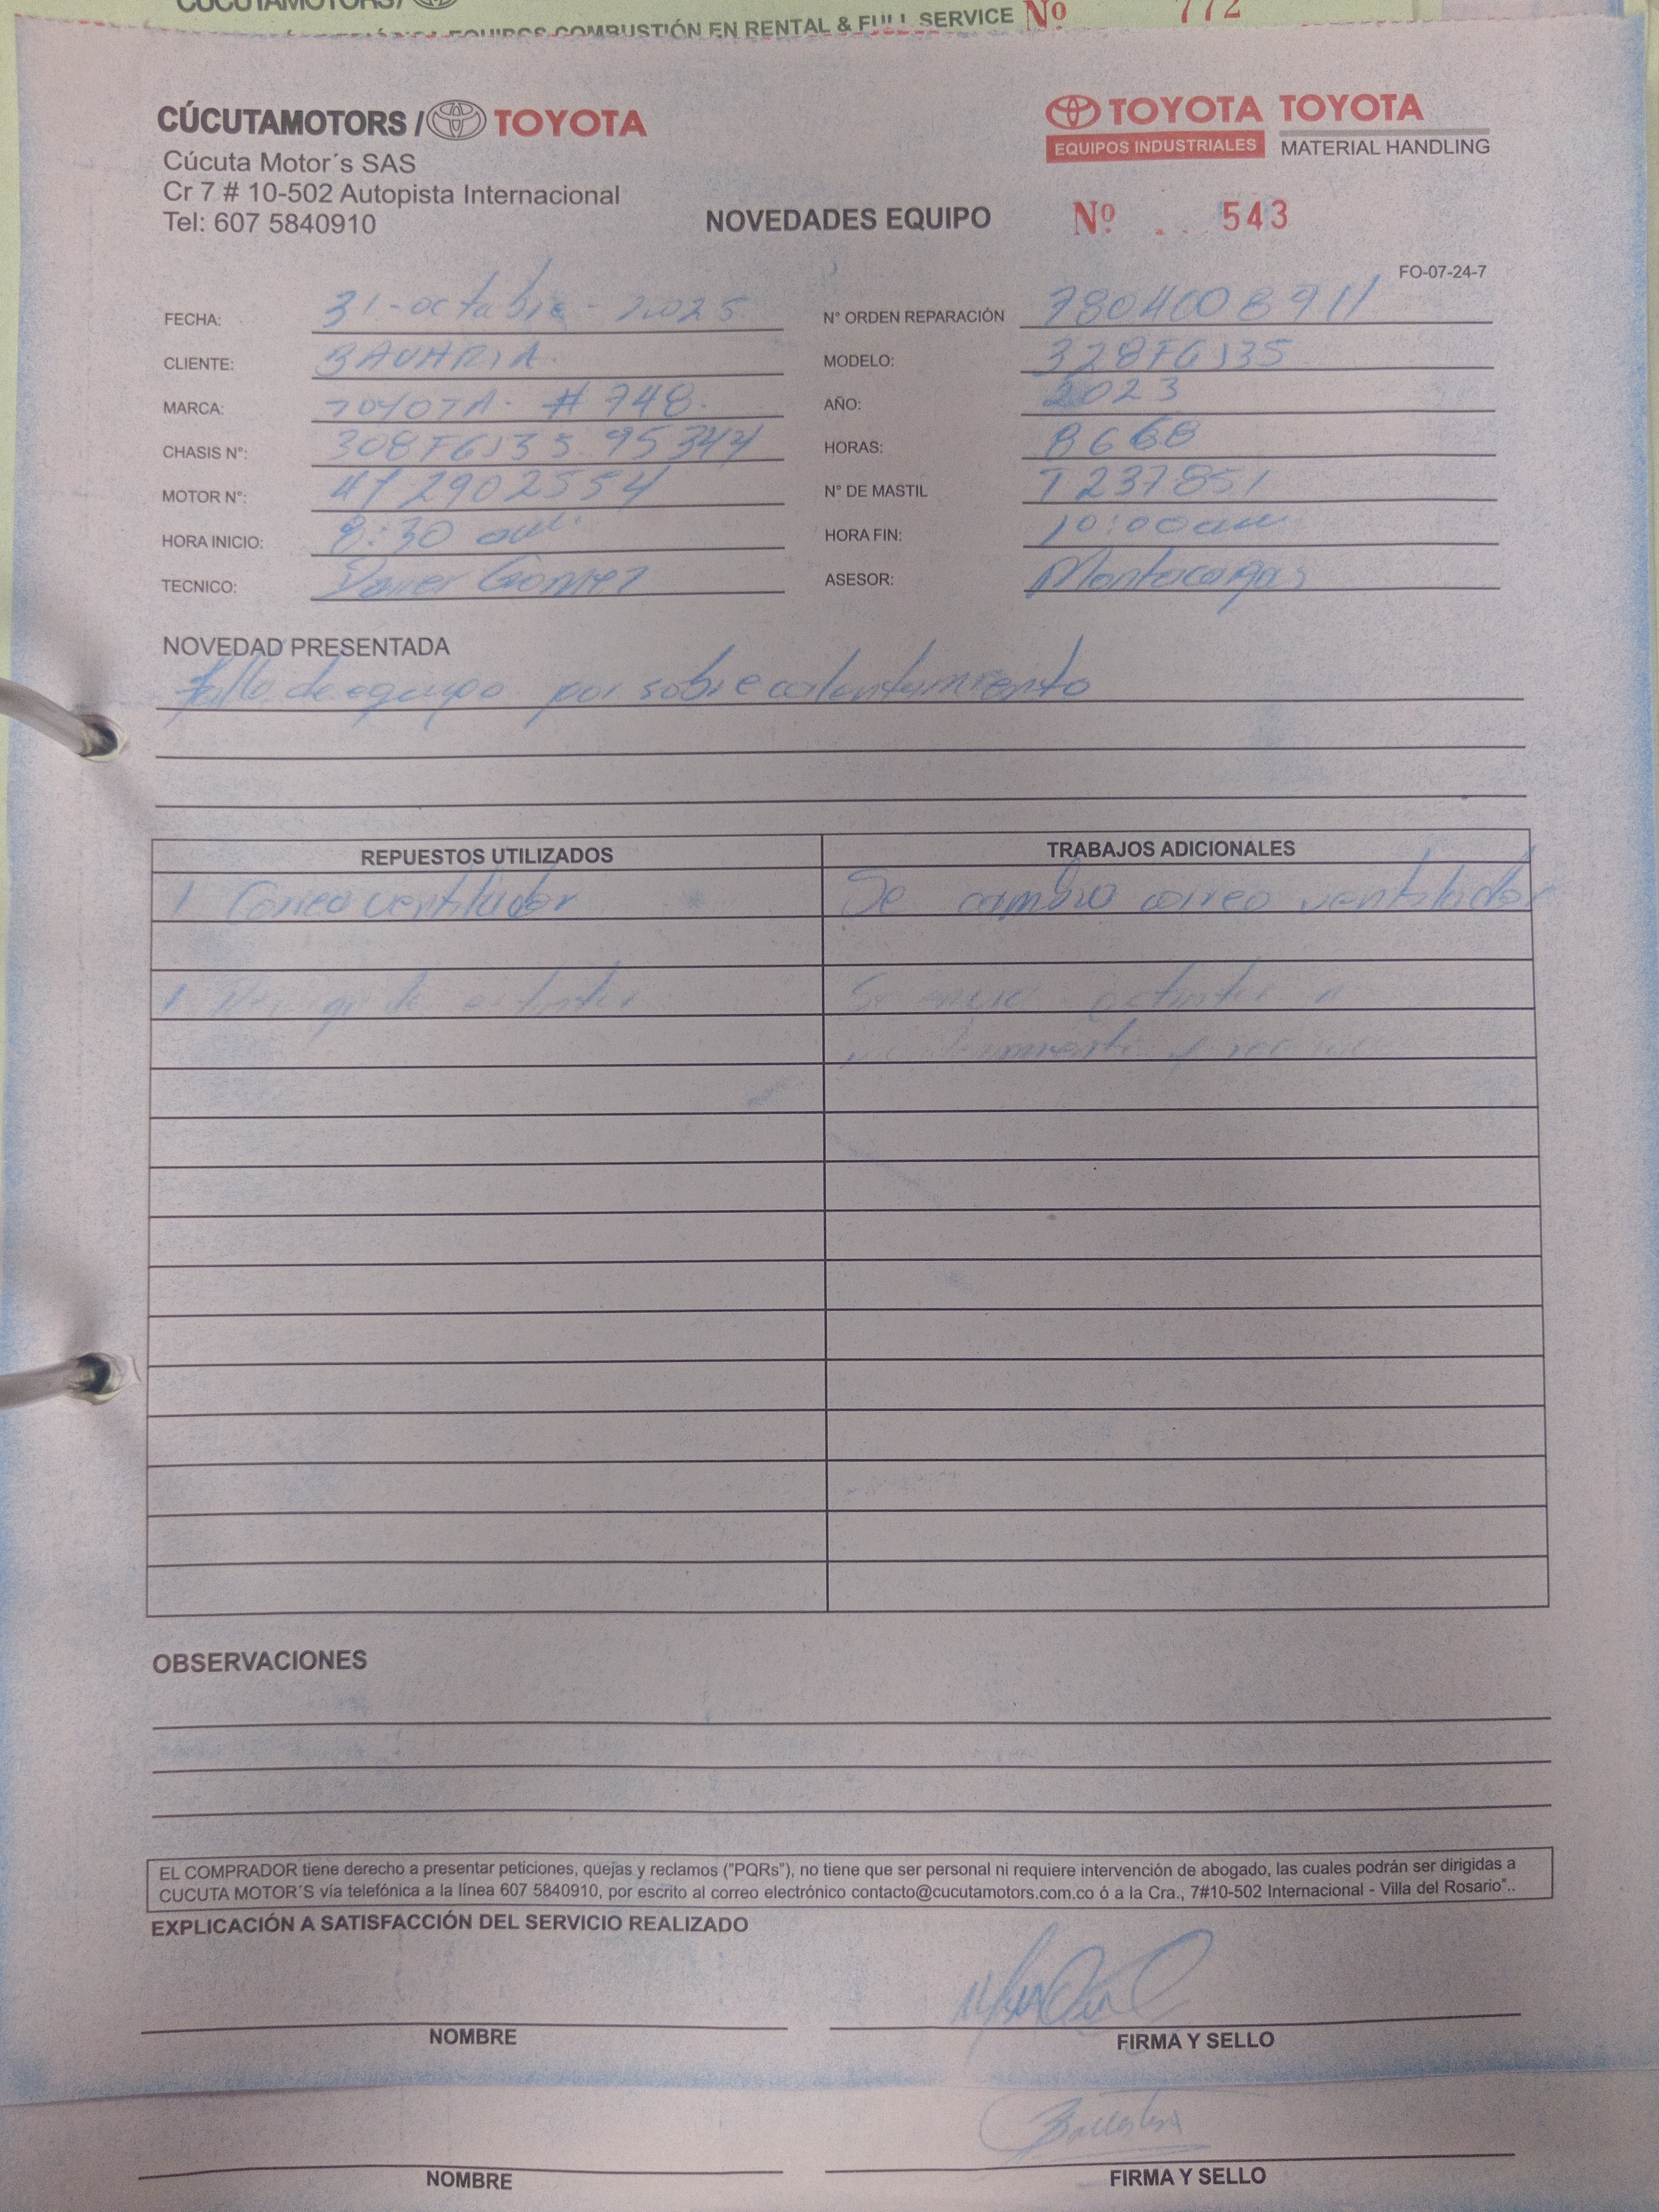 CÚCUTAMOTORS/
EQUIPOS COMBUSTIÓN EN RENTAL & FULL SERVICE Nº 772
CÚCUTAMOTORS / TOYOTA
TOYOTA TOYOTA
EQUIPOS INDUSTRIALES MATERIAL HANDLING
Cúcuta Motor´s SAS
Cr 7 # 10-502 Autopista Internacional
Tel: 607 5840910
NOVEDADES EQUIPO Nº 543
FO-07-24-7
FECHA: 31-octubre-2025 N° ORDEN REPARACIÓN 7804008911
CLIENTE: BAVARIA MODELO: 328FGJ35
MARCA: TOYOTA- # 748. AÑO: 2023
CHASIS N°: 308FGJ35 95344 HORAS: 8668
MOTOR N°: 4Y2902554 N° DE MASTIL T237851
HORA INICIO: 8:30 am. HORA FIN: 10:00am
TECNICO: Gomez ASESOR: Montacargas
NOVEDAD PRESENTADA
falla de equipo por sobrecalentamiento
REPUESTOS UTILIZADOS TRABAJOS ADICIONALES
1 Correa ventilador Se cambio correa ventilador
1
OBSERVACIONES
EL COMPRADOR tiene derecho a presentar peticiones, quejas y reclamos ("PQRs"), no tiene que ser personal ni requiere intervención de abogado, las cuales podrán ser dirigidas a
CUCUTA MOTOR´S vía telefónica a la línea 607 5840910, por escrito al correo electrónico contacto@cucutamotors.com.co ó a la Cra., 7#10-502 Internacional - Villa del Rosario"..
EXPLICACIÓN A SATISFACCIÓN DEL SERVICIO REALIZADO
NOMBRE FIRMA Y SELLO
NOMBRE FIRMA Y SELLO